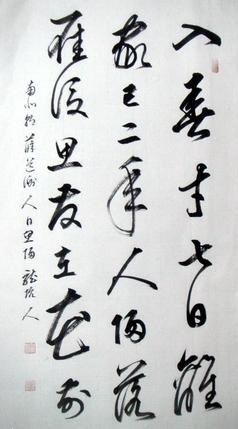 入春才七日離
家已二年人歸落
雁後思發在花前
南北朝薛道衡人日思歸 龍 人